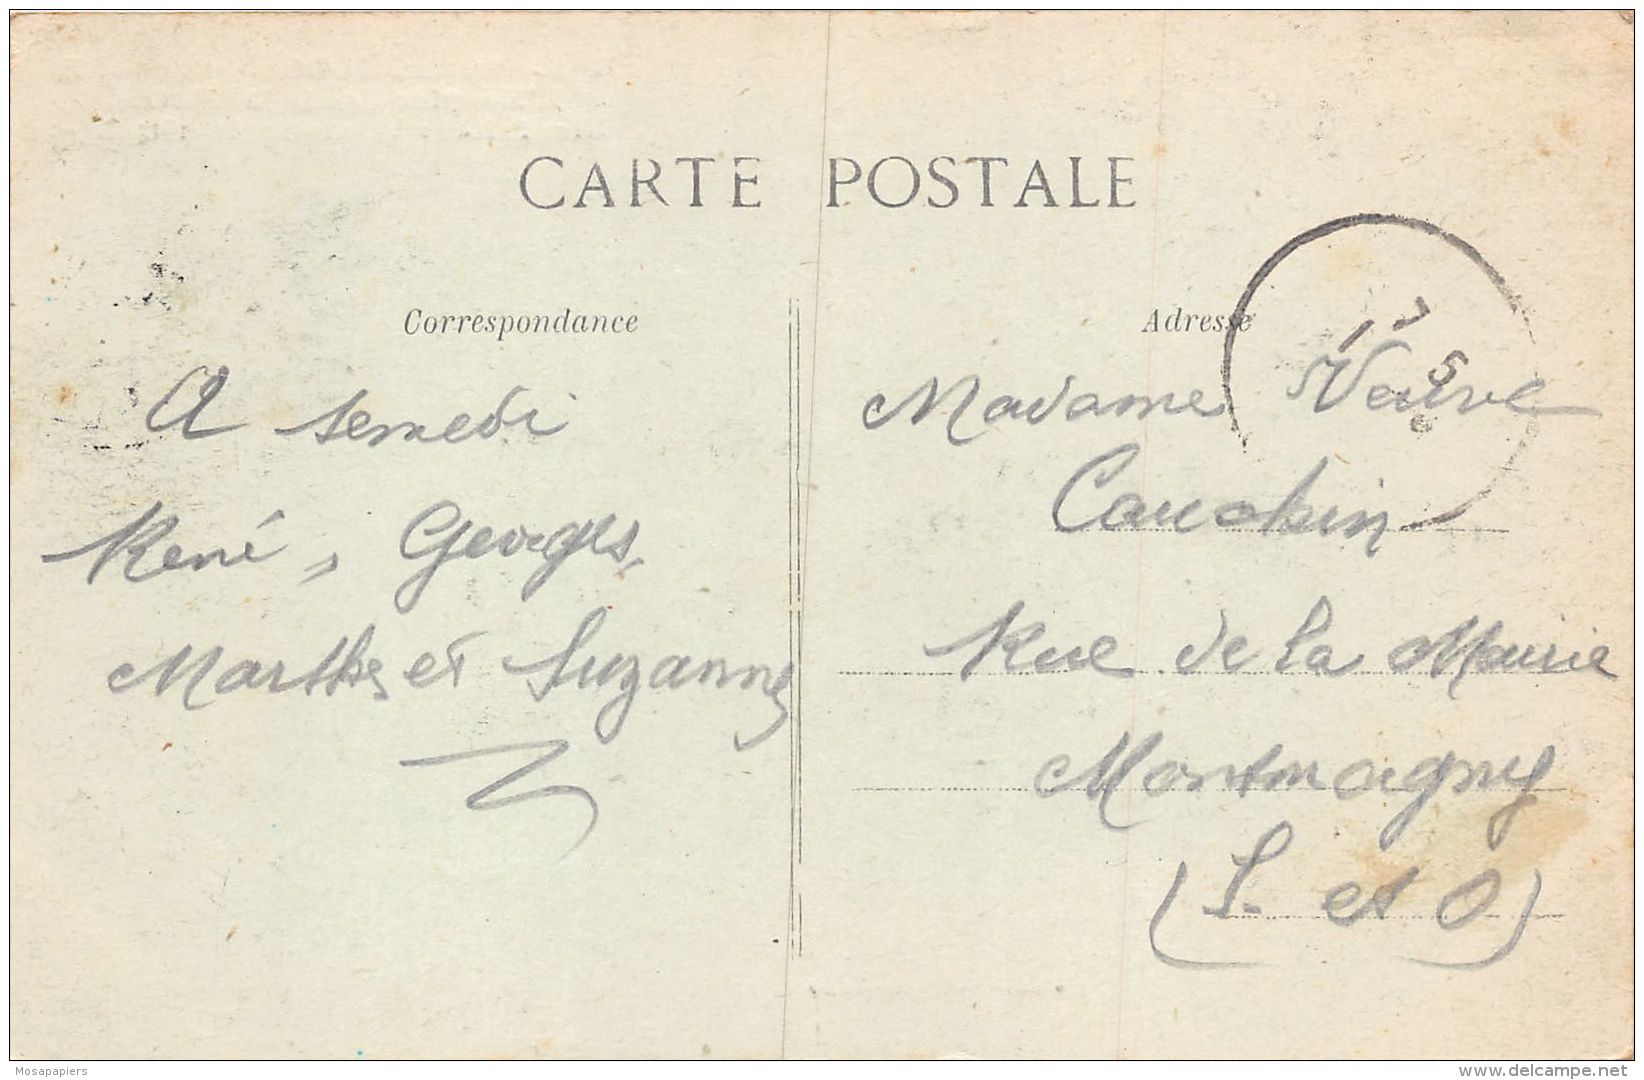 CARTE POSTALE
Correspondance
A semedi
René, Georges,
Marthe et Suzanne
Adresse
17
5
Madame Veuve
Cauchin
Rue de la Mairie
Montmagny
(S. et O)
Mosapapiers
www.delcampe.net